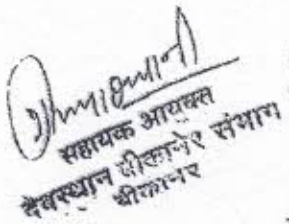 सहायक आयुक्त
देवस्थान बीकानेर संभाग
बीकानेर